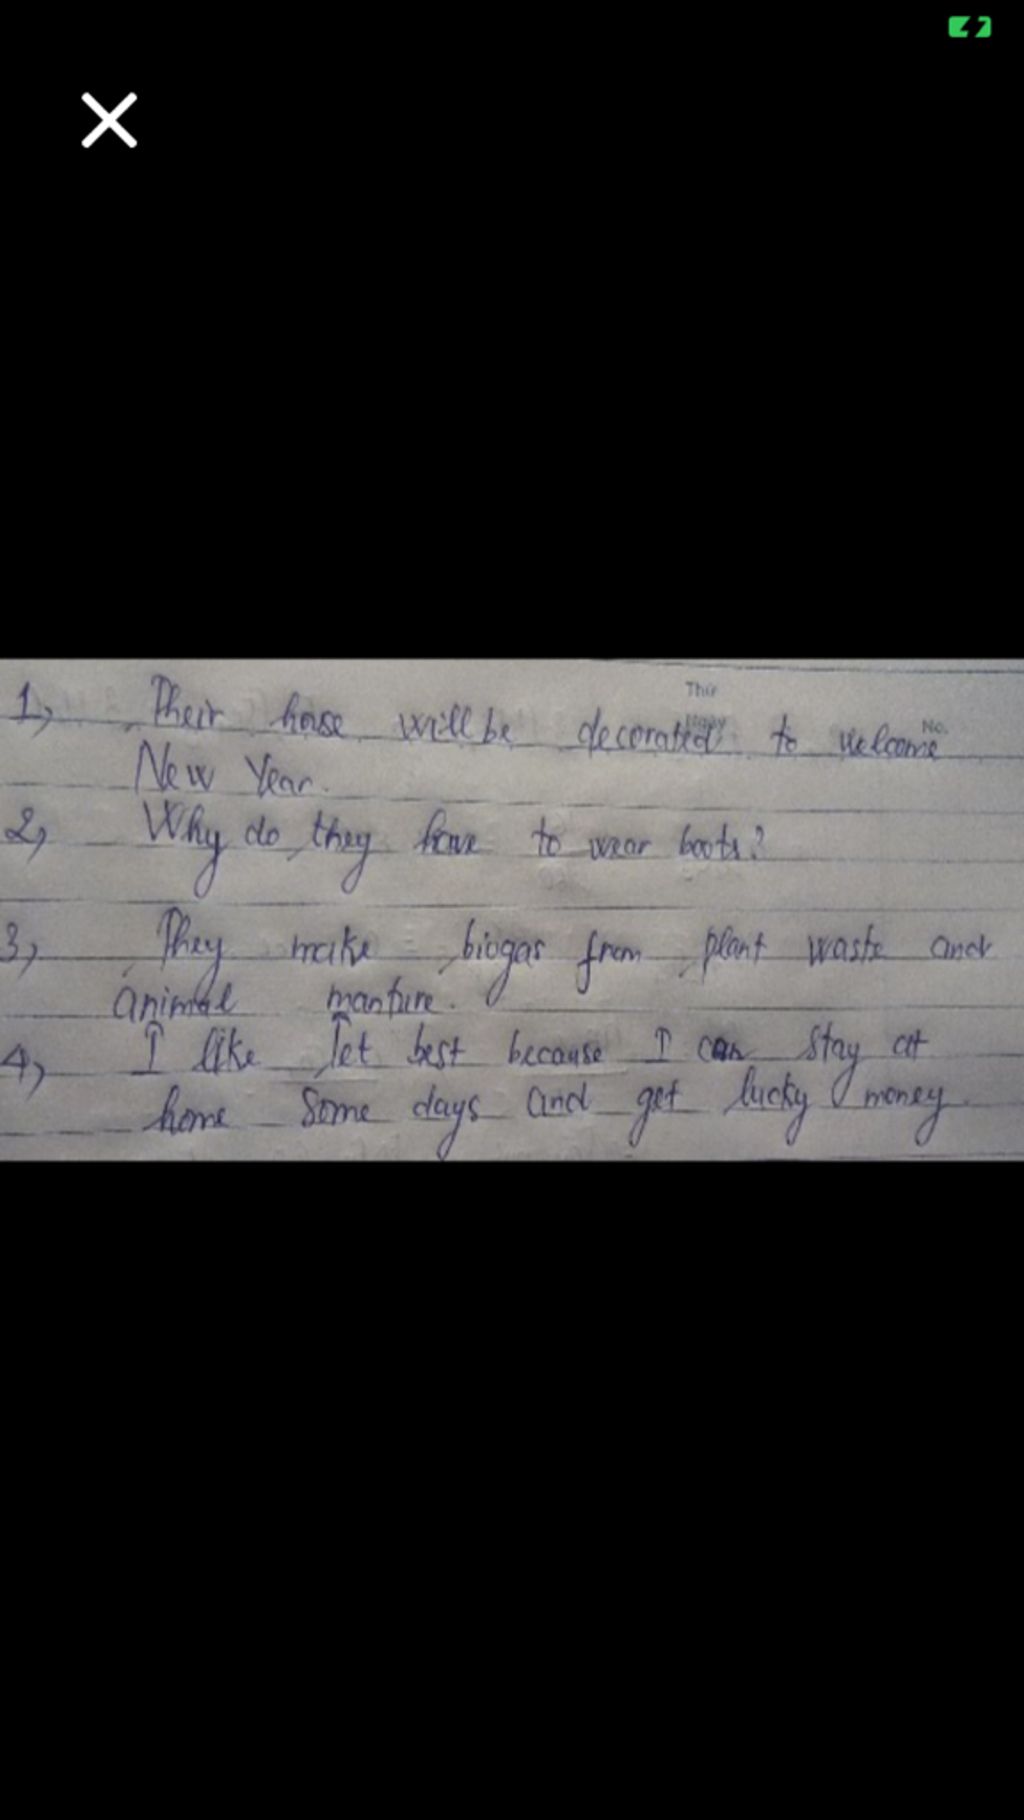 1, Their house will be decorated to welcome
New Year.
2, Why do they have to wear boots?
3, They make biogas from plant waste and
animal manture.
4, I like Tet best because I can stay at
home some days and get lucky money.